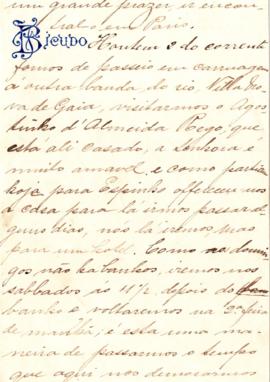 um grande prazer, ir encon-
tral-o em Paris.
Bicudo
Hontem 2 do corrente
fomos de passeio em carruagem
a outra banda do rio, Villa No-
va de Gaia, visitarmos o Agos-
tinho d'Almeida Rego, que
esta ali casado, a senhora é
muito amavel e como partem
hoje para Espinho offereceu-nos
a casa para lá irmos passar al-
guns dias, nós lá iremos mas
para um hotel. Como aos domin-
gos não ha banhos, iremos nos
sabbados as 11 1/2 depois do
banho e voltaremos na 2ª feira
de manhã, é esta uma ma-
neira de passarmos o tempo
que aqui nos demoramos